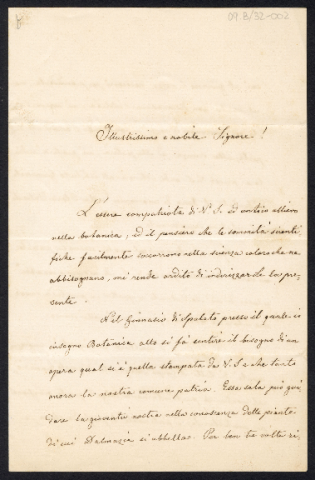 09.B/32-002
Illustrissimo e nobile Signore!
L'essere compatriota di V. S. ed antico allievo
nella botanica, ed il pensiere che le sommità scienti
fiche facilmente soccorrono nella scienza coloro che ne
abbisognano, mi rende ardito di indirizzarLe la pre
sente.
Nel Ginnasio di Spalato presso il quale io
insegno Botanica alto si fa sentire il bisogno di un
opera qual si è quella stampata da V. S. e che tanto
onora la nostra comune patria. Essa sola può gui
dare la gioventù nostra nella conoscenza delle piante
di cui Dalmazia si abbella. Per ben tre volte ri